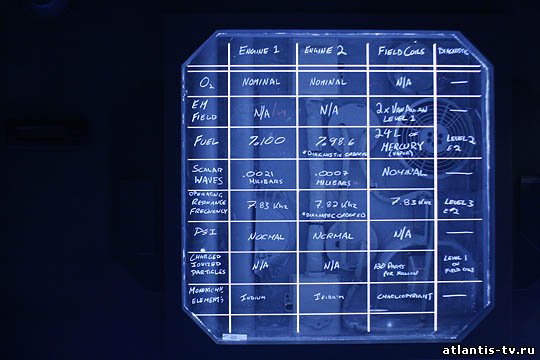 ENGINE 1 ENGINE 2 FIELD COILS DIAGNOSTIC
O2 NOMINAL NOMINAL N/A —
EM FIELD N/A N/A 2 x VAN ALLAN LEVEL 1 —
FUEL %100 %98.6 *DIAGNOSTIC ORDERED 24 L OF MERCURY (VAPOR) LEVEL 2 E2
SCALAR WAVES .0021 MILIBARS .0007 MILIBARS NOMINAL —
OPERATING RESONANCE FREQUENCY 7.83 KHZ 7.82 KHZ *DIAGNOSTIC ORDERED 7.83 KHZ LEVEL 3 E2
PSI NORMAL NORMAL N/A —
CHARGED IONIZED PARTICLES N/A N/A PARTS PER MILLION LEVEL 1 ON FIELD COILS
ELEMENTS INDIUM IRIDIUM —
atlantis-tv.ru